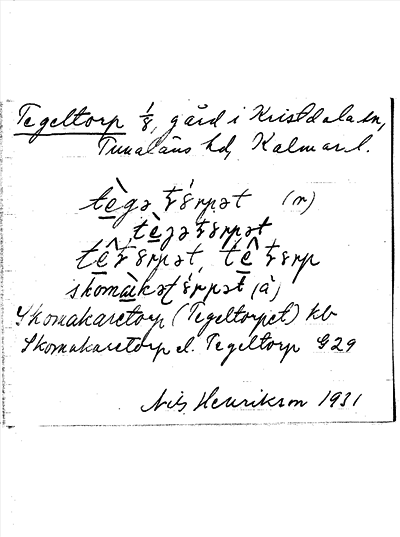 Tegeltorp 1/8, gård i Kristdala sn,
Tunaläns hd, Kalmar l.
tègə tʹɛrpət (n)
tèʒə tʹɛrpət
tê tʹɛrpət, tê tʹɛrp
skomàkətʹɛrpət (ä)
Skomakaretorp (Tegeltorpet) kb
Skomakaretorp el. Tegeltorp G29
Nils Henrikson 1931